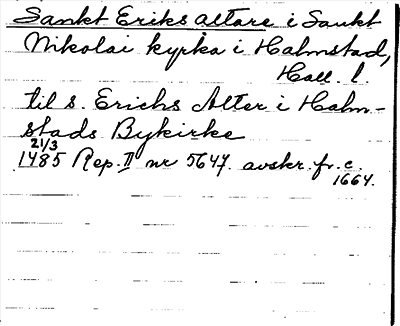 Sankt Eriks altare i Sankt
Nikolai kyrka i Halmstad,
Hall. l.
til s. Erichs Alter i Halm-
stads Bykirke
21/3
1485 Rep. II nr 5647. avskr. fr. c.
1664.